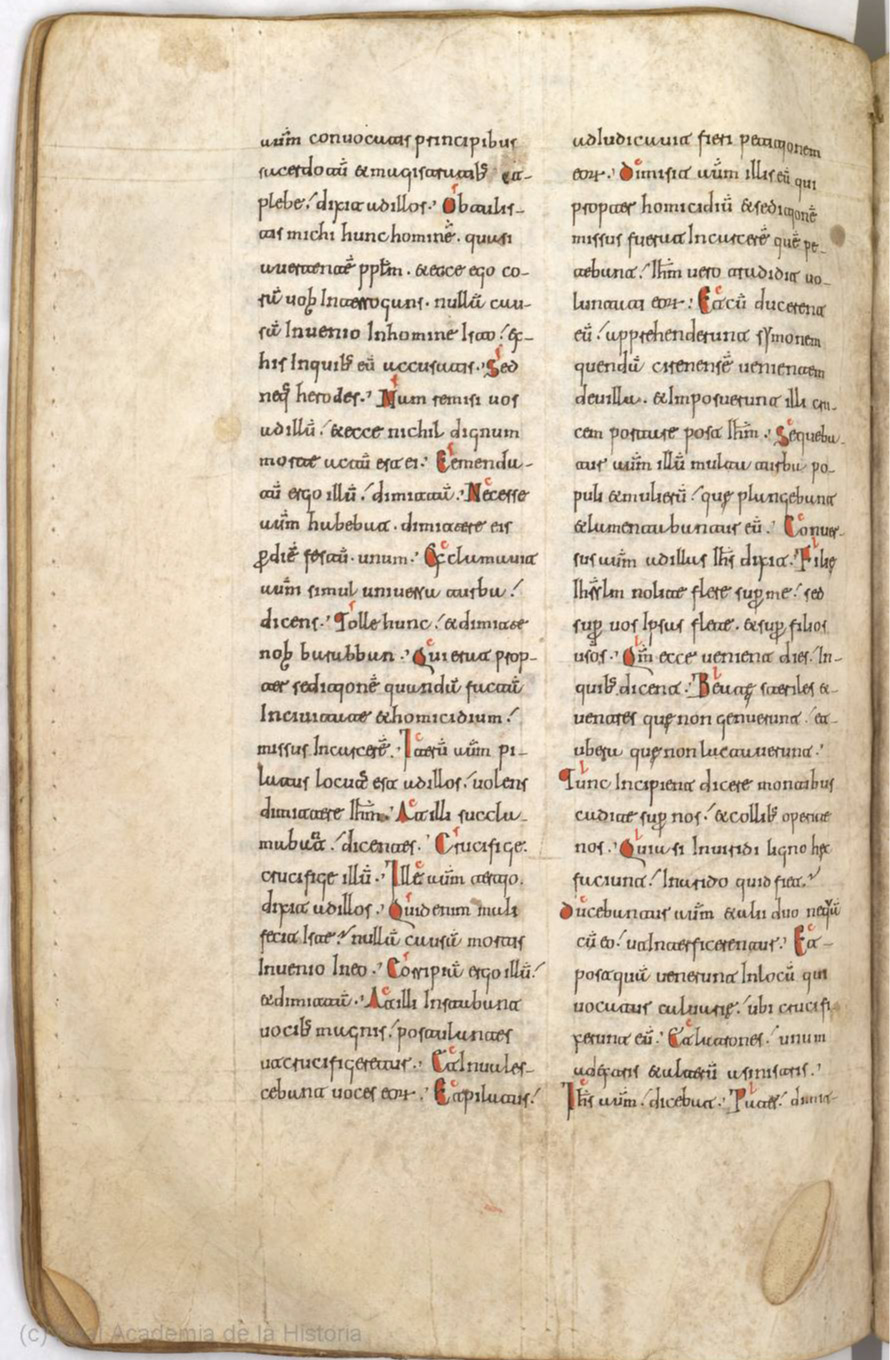 autm̄ convocatis principibus
sacerdotū & magistratib; et
plebe. dixit ad illos. Obtulis-
tis michi hunc hominē. quasi
avertentē pplm̄. & ecce ego co-
rā vob; Interrogans. nullā cau-
sā Invenio In homine Isto. ex
his In quib; eū accusatis. Sed
neq; herodes. Nam remisi vos
ad illū. & ecce nichil dignum
morte actū est ei. Emenda-
tū ergo illū. dimittā. Necesse
autm̄ habebat. dimittere eis
p diē festū. unum. Exclamavit
autm̄ simul universa turba.
dicens. Tolle hunc. & dimitte
nob; barabban. Qui erat prop-
ter seditionē quandā factā
In civitate & homicidium.
missus In carcerē. Iterū autm̄ pi-
latus locutꝰ est ad illos. volens
dimittere Ihm̄. At illi succla-
mabāt. dicentes. Crucifige.
crucifige illū. Ille autm̄ tertio.
dixit ad illos. Quid enim mali
fecit Iste. nullā causā mortis
Invenio In eo. Corripiā ergo illū.
& dimittā. At illi Instabant
vocib; magnis. postulantes
ut crucifigeretur. Et Invales-
cebant voces eor. Et pilatus.
adiudicavit fieri petitionem
eor. Dimisit autm̄ illis eū qui
propter homicidiū & seditionē
missus fuerat In carcerē quē pe-
tebant. Ihm̄ vero tradidit vo-
luntati eor. Et cū ducerent
eū. apprehenderunt symonem
quendā cirenensē venientem
de villa. & Imposuerunt illi cru-
cem portare post Ihm̄. Sequeba-
tur autm̄ illū multa turba po-
puli & mulierū. quę plangebant
& lamentabantur eū. Conver-
sus autm̄ ad illas Ihs̄ dixit. Filię
Ihrslm nolite flere sup me. sed
sup vos Ipsas flete. & sup filios
vsos. Qm̄ ecce venient dies. In
quib; dicent. Beatę steriles &
ventres quę non genuerunt. et
ubera quę non lactaverunt.
Tunc Incipient dicere montibus
cadite sup nos. & collib; operite
nos. Quia si In viridi ligno hęc
faciunt. In arido quid fiet.
Ducebantur autm̄ & alii duo neqā
cū eo. ut Interficerentur. Et
postquā venerunt In locū qui
vocatur calvarię. ubi crucifi
xerunt eū. Et latrones. unum
a dextris & alterū a sinistris.
Ihs̄ autm̄. dicebat. Pater. dimit-